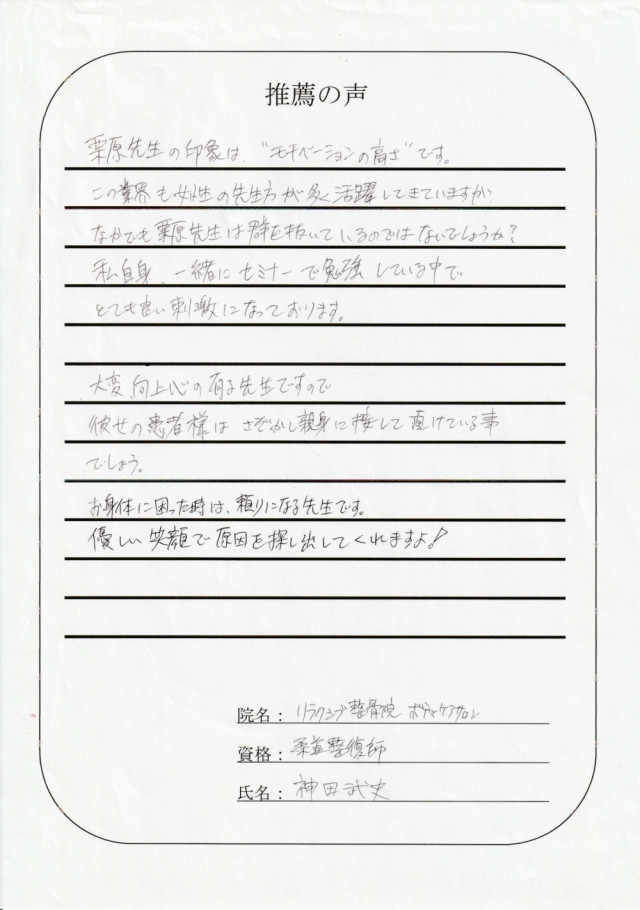 推薦の声
栗原先生の印象は、“モチベーションの高さ”です。
この業界も女性の先生方が多く活躍してきていますが
なかでも栗原先生は群を抜いているのではないでしょうか？
私自身、一緒にセミナーで勉強している中で
とても良い刺激になっております。
大変向上心の有る先生ですので
彼女の患者様はさぞかし親身に接して頂けている事
でしょう。
お身体に困った時は、頼りになる先生です。
優しい笑顔で原因を探し出してくれますよ！
院名：リラクシブ整骨院 ボディケアサロン
資格：柔道整復師
氏名：神田武史